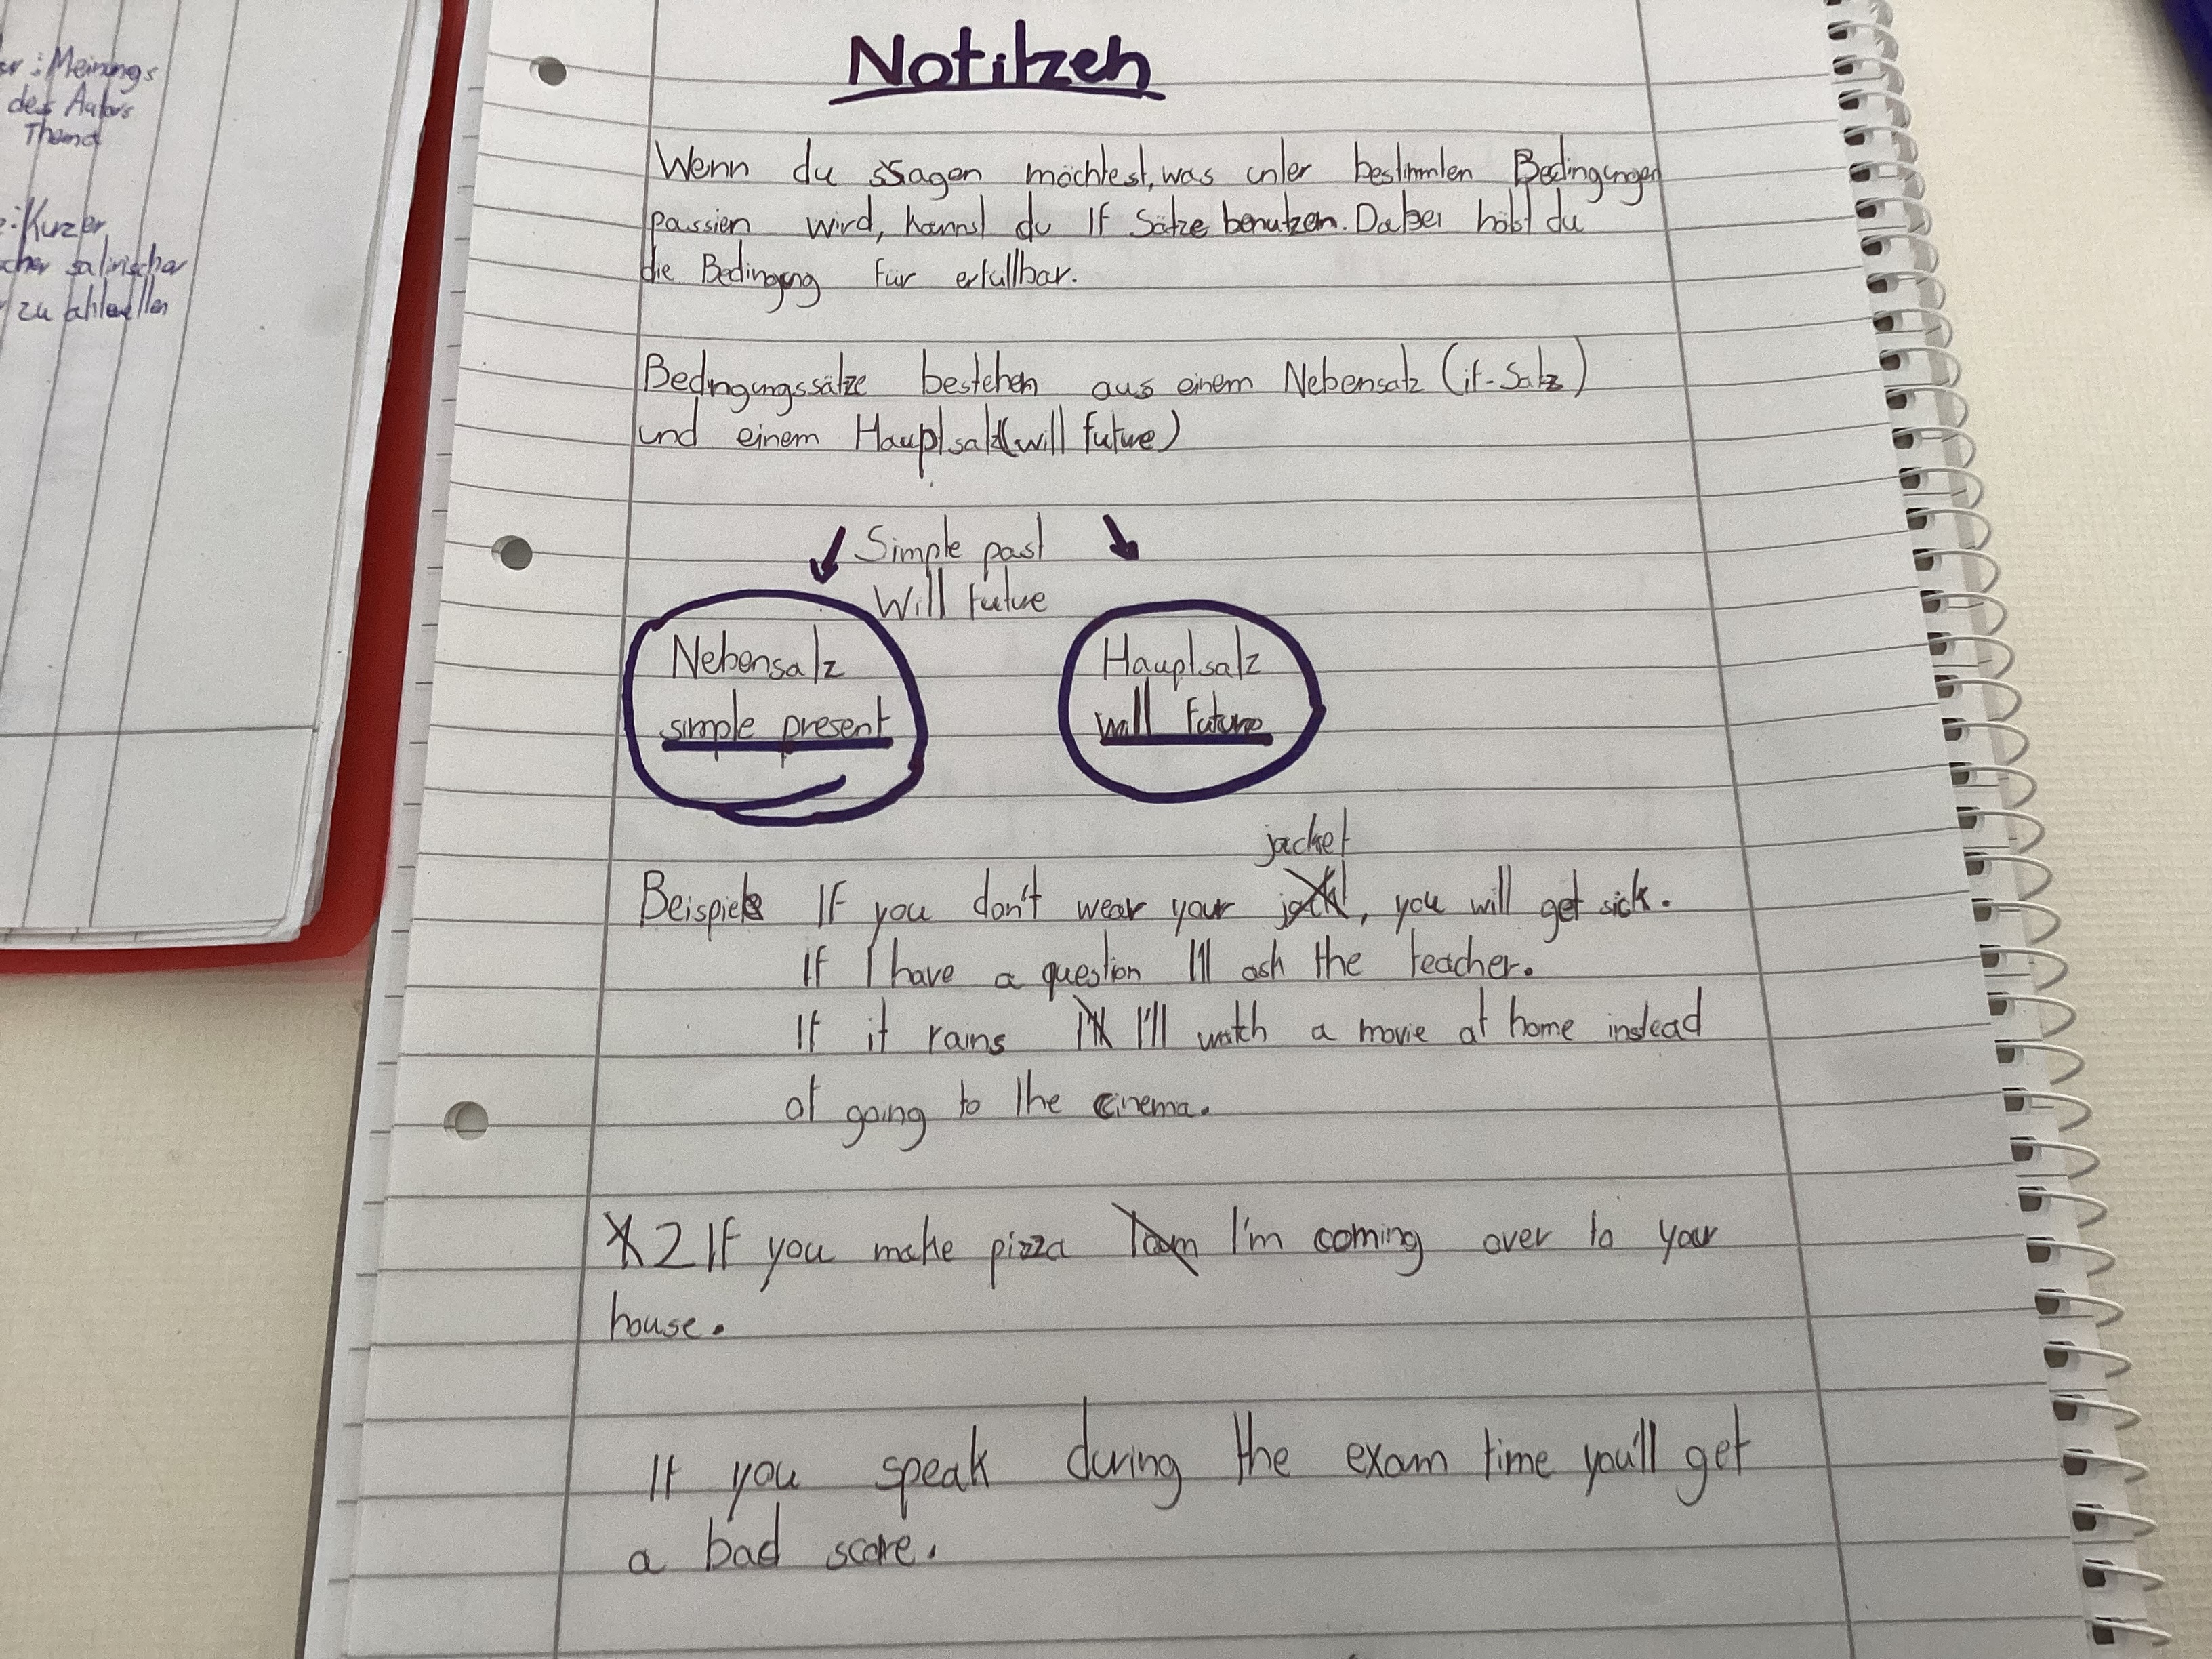 : Meinungs
des Autors
Thema
: Kurzer
satirischer
zu aktuellen
Notitzen
Wenn du sSagen möchtest, was unter bestimmten Bedingungen
passien wird, kannst du If Sätze benutzen. Dabei hälst du
die Bedingung für erfüllbar.
Bedingungssätze bestehen aus einem Nebensatz (if-Satz)
und einem Hauptsatz (will future)
Simple past
Will future
Nebensatz Hauptsatz
simple present will future
jacket
Beispiele If you don't wear your , you will get sick.
If I have a question I'll ask the teacher.
If it rains I'll watch a movie at home instead
of going to the cinema.
2 If you make pizza I'm coming over to your
house.
If you speak during the exam time you'll get
a bad score.